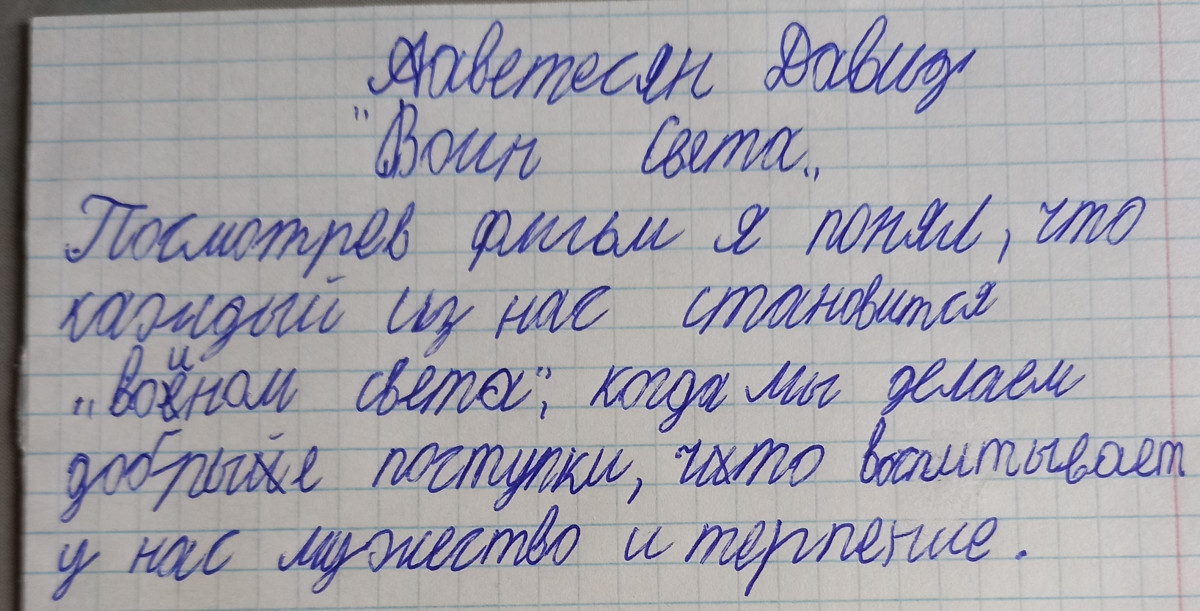 Ааветесян Давид
"Воин света„
Посмотрев фильм я понял, что
каждый из нас становится
„воином света", когда мы делаем
добрые поступки, что воспитывает
у нас мужество и терпение.